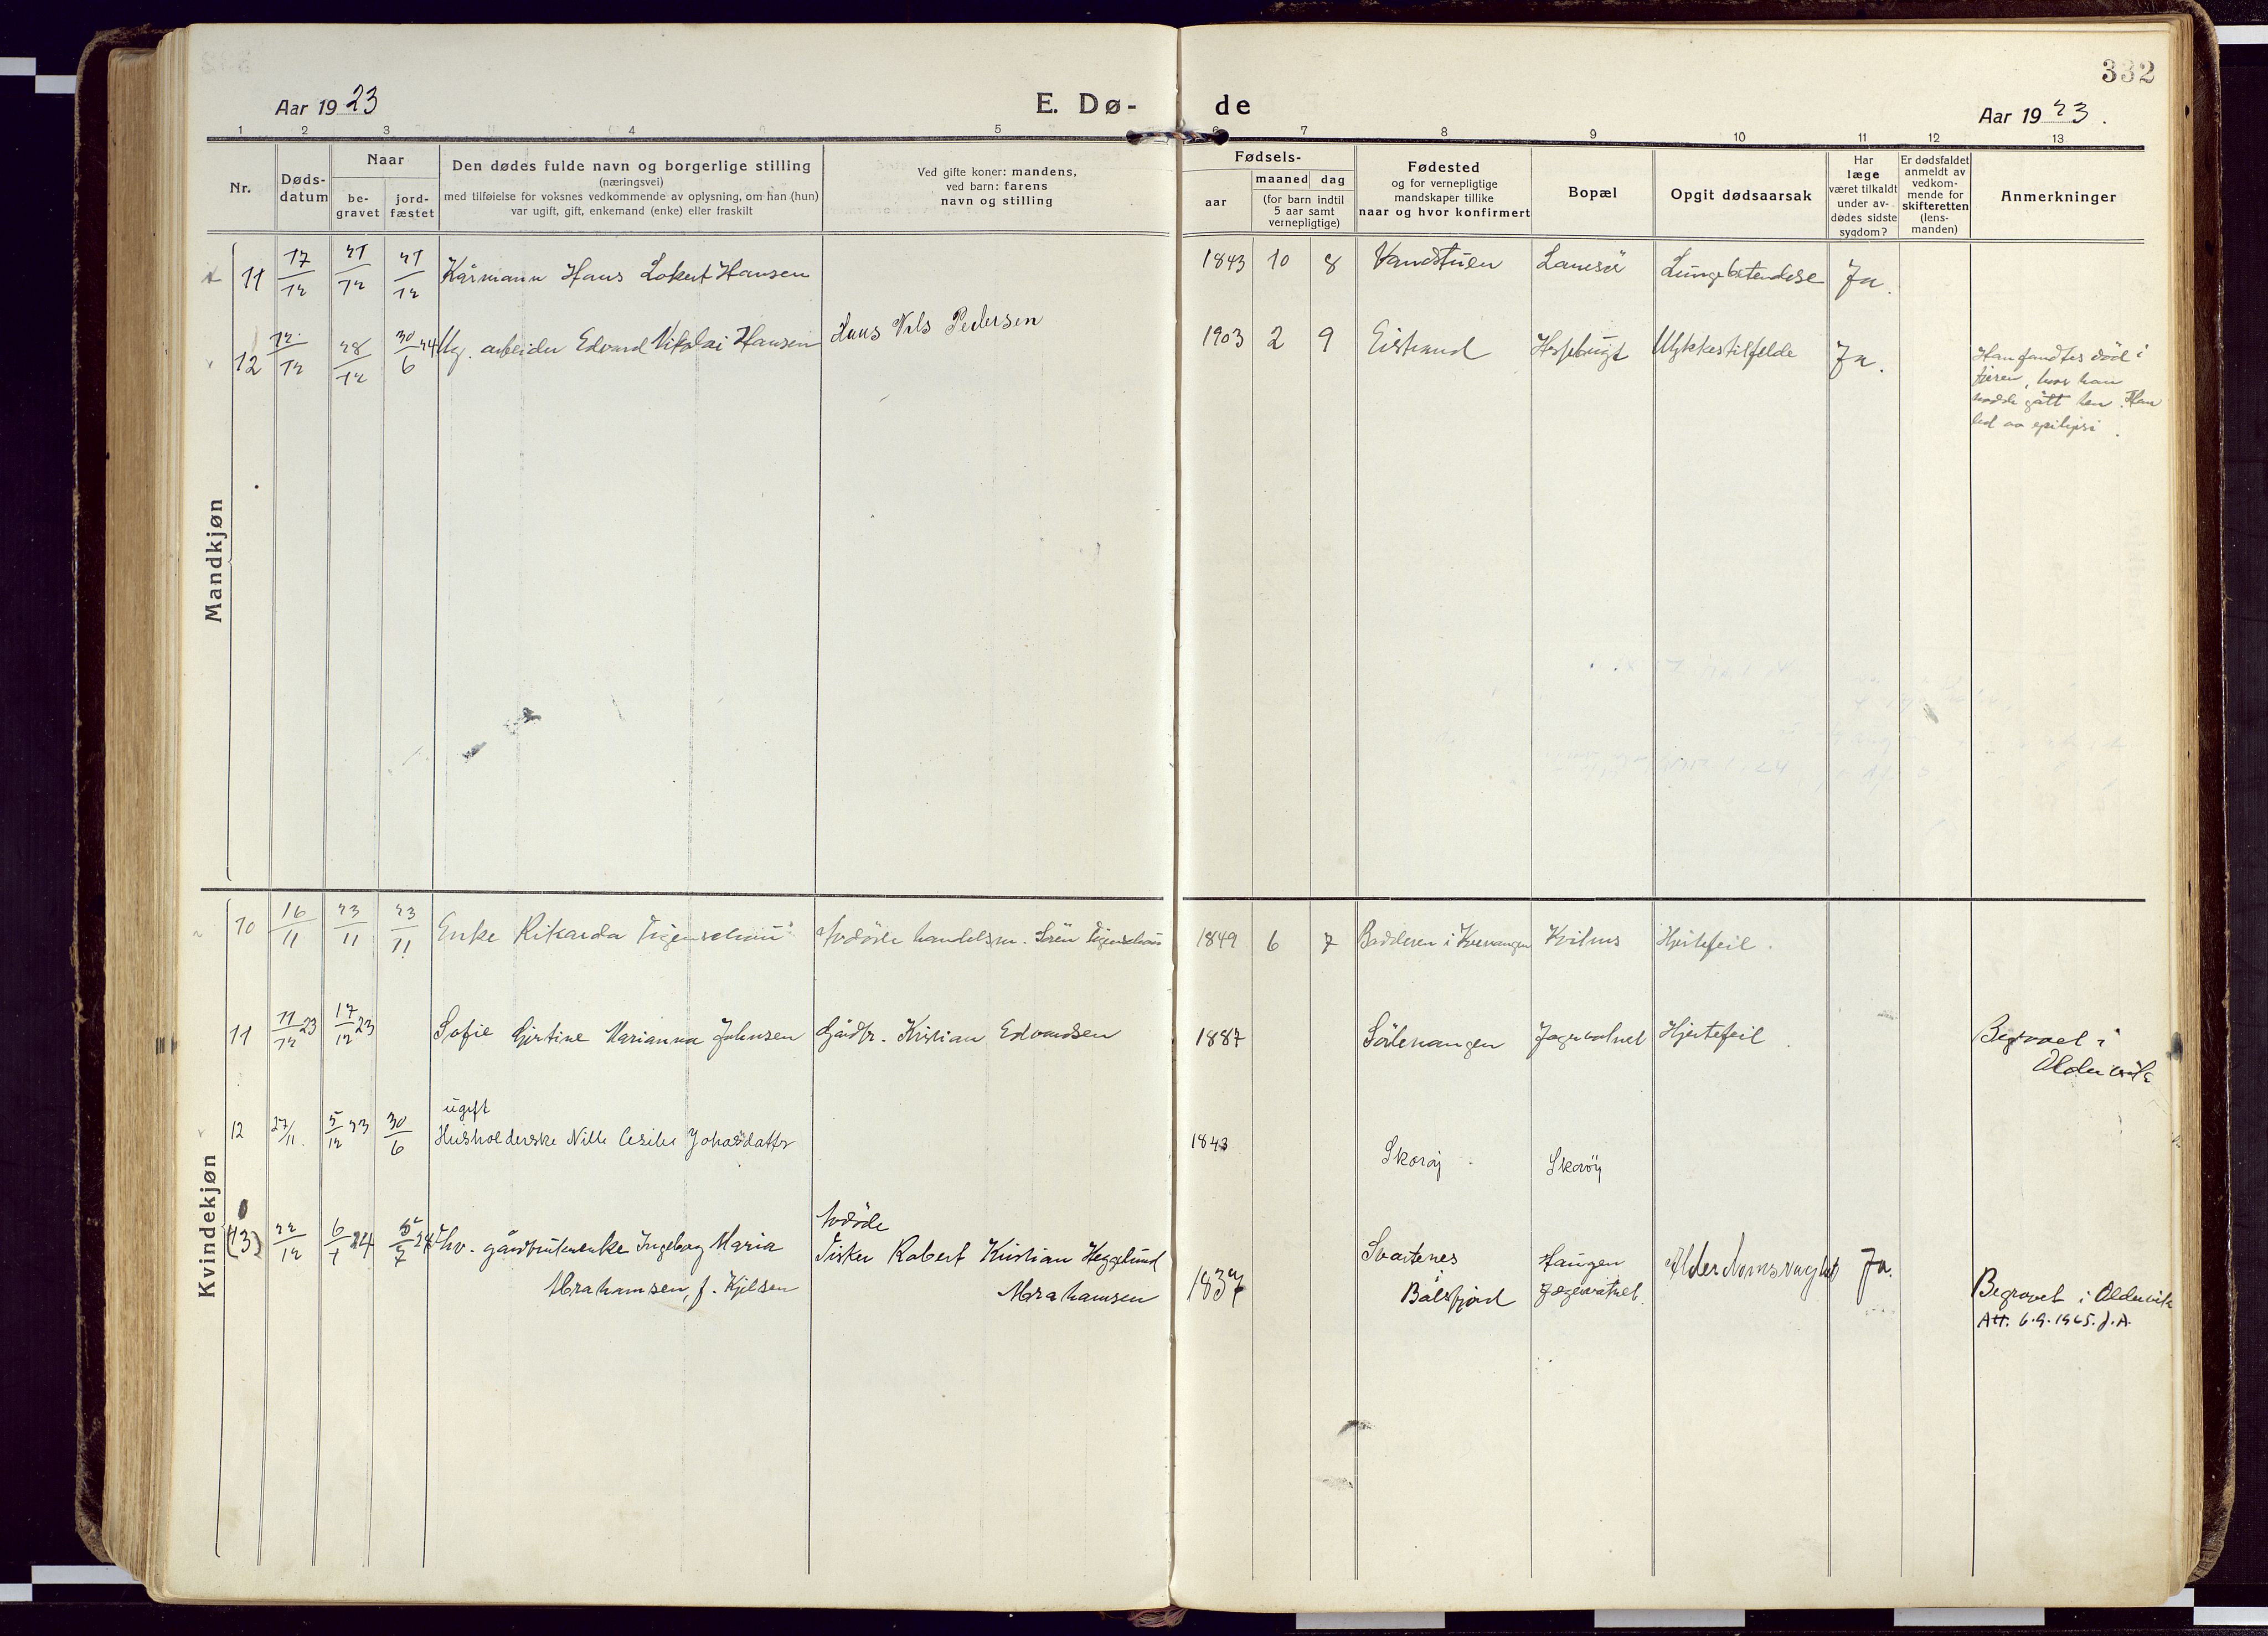 332
Aar 1923
E. Dø-
de
Aar 1923.
1 2 3 4 5 6 7 8 9 10 11 12 13
Nr.
Døds-
datum
Naar
be-
gravet
jord-
fæstet
Den dødes fulde navn og borgerlige stilling
(næringsvei)
med tilføielse for voksnes vedkommende av oplysning, om han (hun)
var ugift, gift, enkemand (enke) eller fraskilt
Ved gifte koner: mandens,
ved barn: farens
navn og stilling
Fødsels-
aar
maaned dag
(for barn indtil
5 aar samt
vernepligtige)
Fødested
og for vernepligtige
mandskaper tillike
naar og hvor konfirmert
Bopæl
Opgit dødsaarsak
Har
læge
været tilkaldt
under av-
dødes sidste
sygdom?
Er dødsfaldet
anmeldt av
vedkom-
mende for
skifteretten
(lens-
manden)
Anmerkninger
Mandkjøn
11 17/12 21/12 21/12 Kårmann Hans Lokert Hansen 1843 10 8 Vandstuen Lanesør Lungebetendelse Ja.
12 12/12 28/12 30/6 24 Ug. arbeider Edvard Nikolai Hansen Hans Nils Pedersen 1903 2 9 Eistrand Ulykkestilfelde Ja.
Han fandtes død i
fjæren, hvor han
hadde gått hen. Han
led av epilepsi.
Kvindekjøn
10 16/11 23/11 23/11 Enke Rikarda Figenschau Avdöde handelsm. Sören Figenschau 1849 6 7 Badderen i Kvenangen Hjertefeil.
11 11/12 23 17/12 23 Sofie Gjertine Marianna Johnsen Gårdbr. Kristian Edvardsen 1887 Sörlenangen Jægervatnet Hjertefeil. Begravet i
Oldervik
ugift
12 27/11. 5/12 23 30/6 Husholderske Nille Cesilie Johasdatter 1843 Skorøy Skorøy
13 22/12 6/1 24 5/7 24 Fhv. gårdbrukerenke Ingeborg Maria
Abrahamsen, f. Kjilsen
Avdöde
Fisker Robert Kristian Heggelund
Abrahamsen
1837 Svartenes
Balsfjord
Haugen
Jægervatnet.
Alderdomsvaghet Ja.
Begravet i Oldervik
Att. 6.9.1965. J.A.